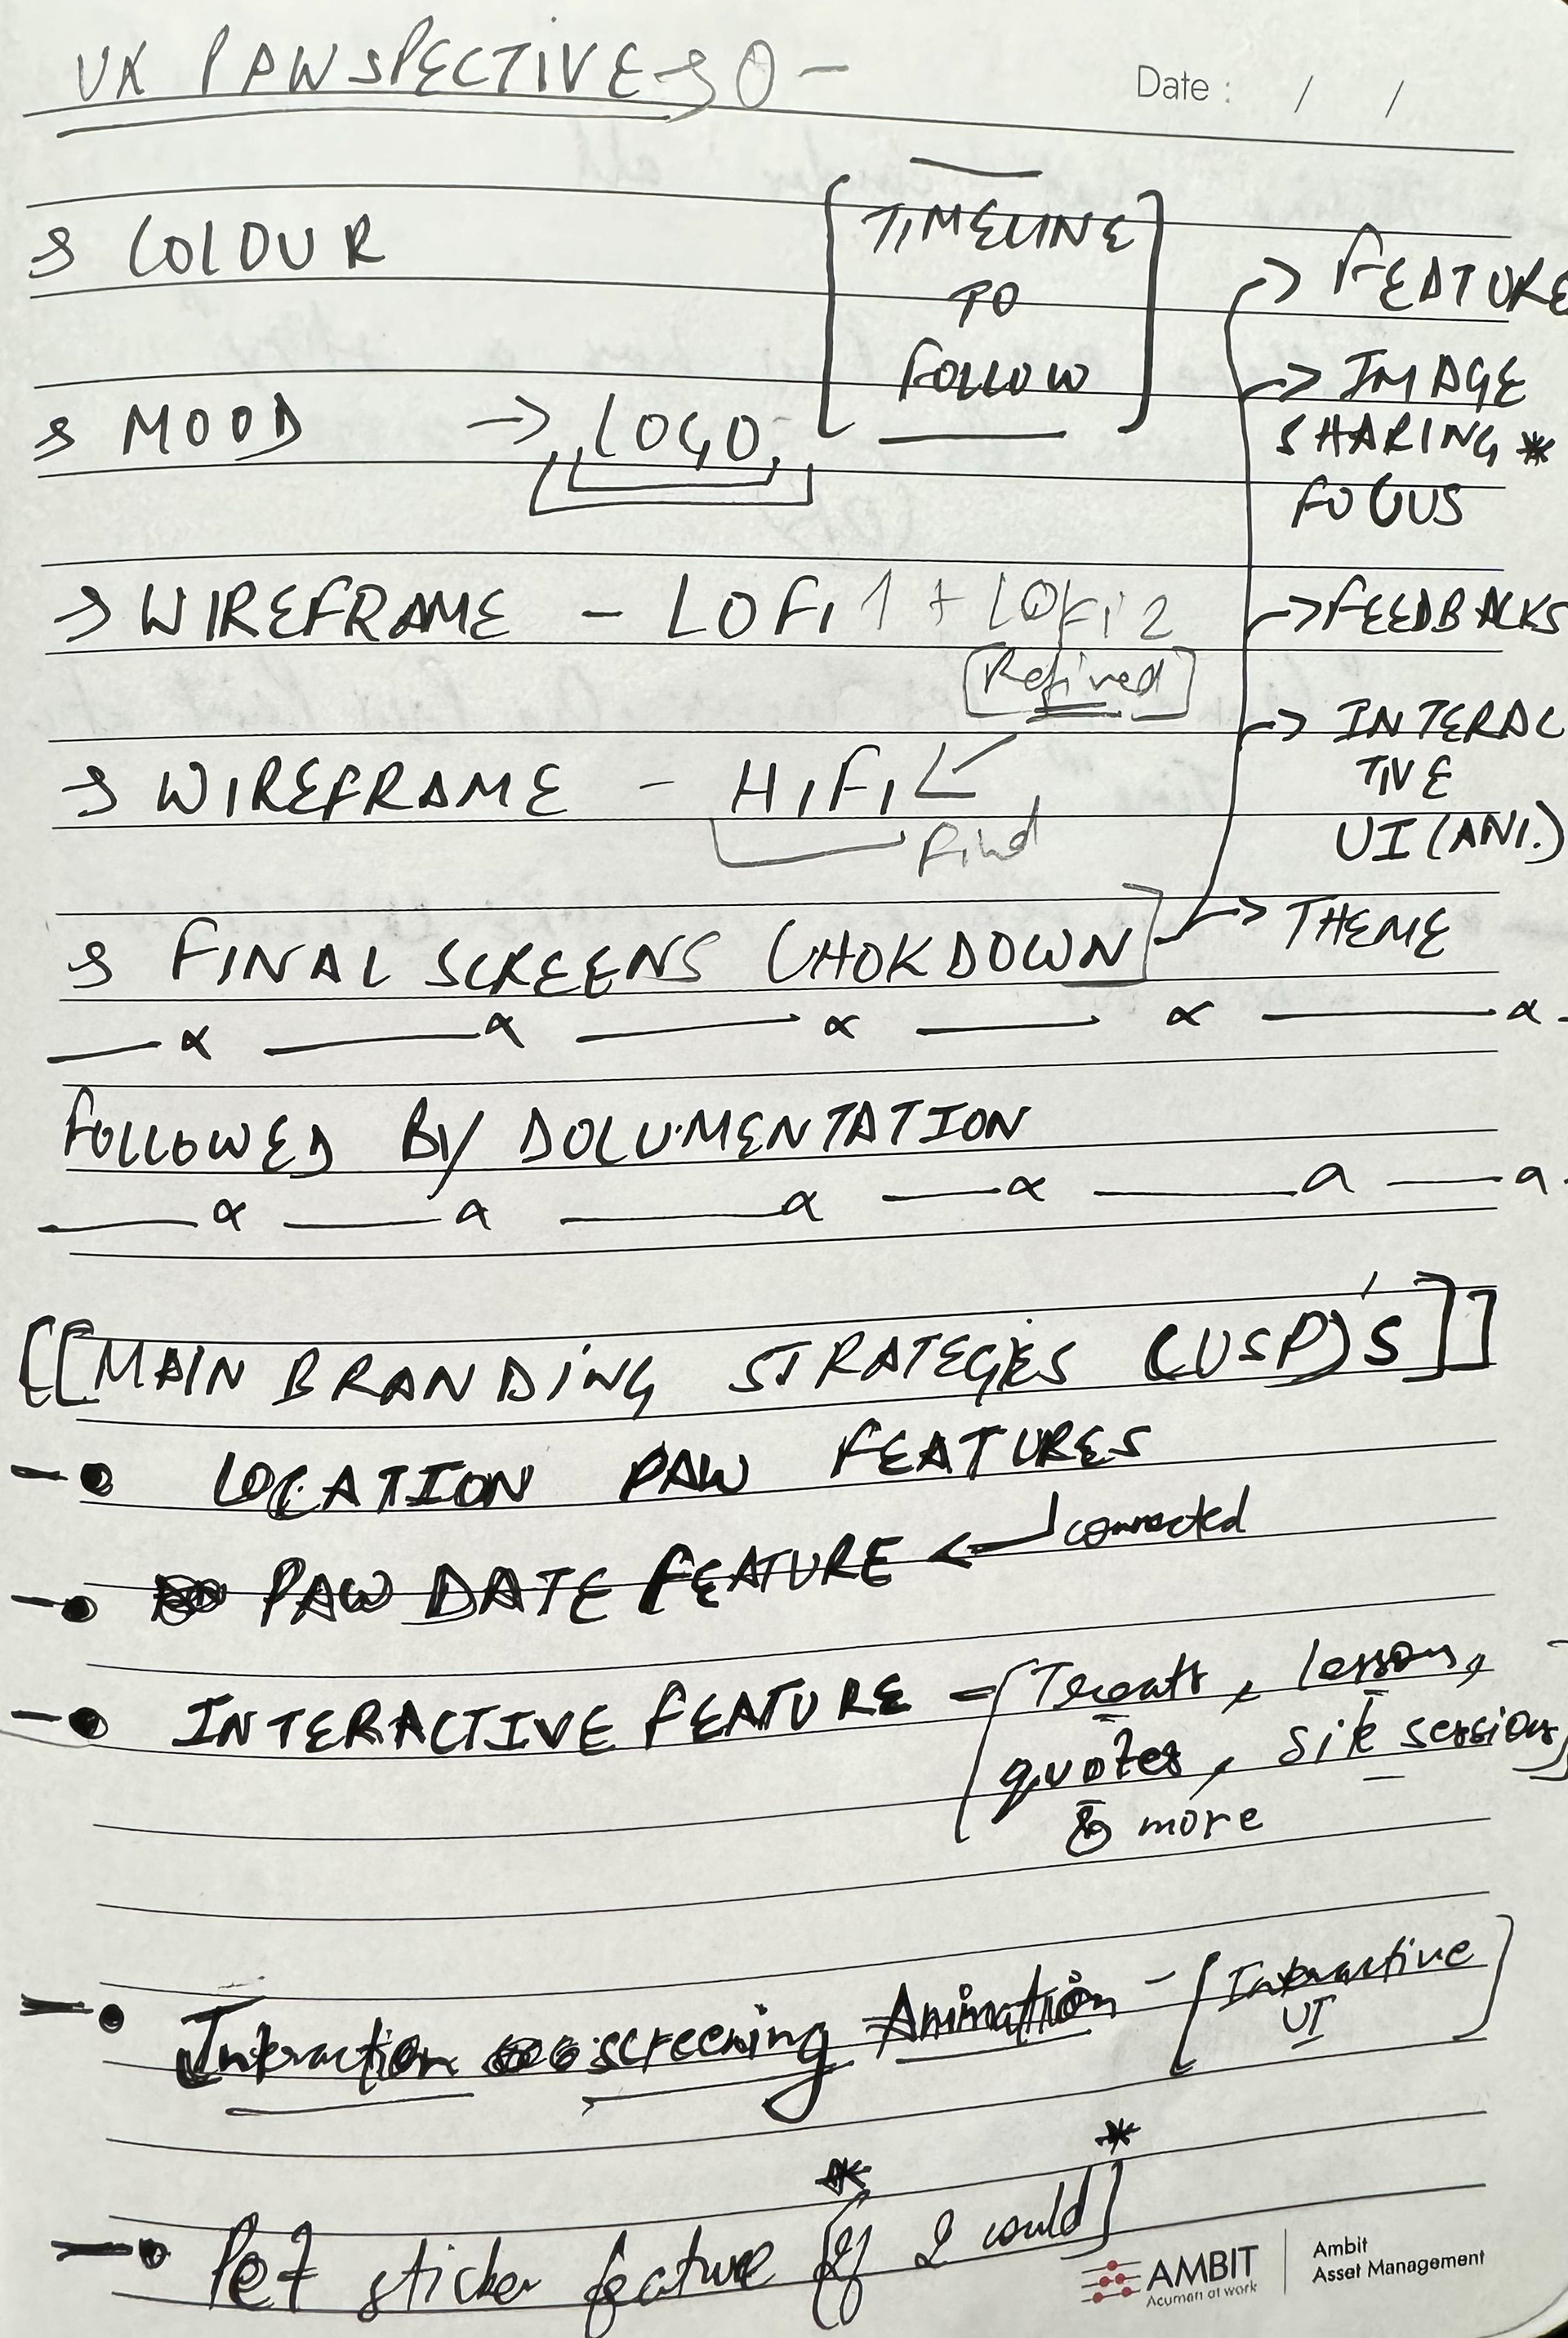 UX PAWSPECTIVE → 0 -
Date : / /
→ COLOUR
[TIMELINE
TO
FOLLOW]
→ MOOD → ,,LOGO,,
→ WIREFRAME - LOFi 1 + LOFi 2
[Refined]
→ WIREFRAME - HiFi ↙
→ FINAL SCREENS CHOKDOWN]
→ FEATURE
→ IMAGE
SHARING *
FOCUS
→ FEEDBACKS
→ INTERAC
TIVE
UI (ANI.)
→ THEME
FOLLOWED BY DOCUMENTATION
[[MAIN BRANDING STRATEGIES (USP)'S]]
-• LOCATION PAW FEATURES
-• PAW DATE FEATURE ← connected
-• INTERACTIVE FEATURE = [Treats, lesson,
quotes, sit sessions]
& more
-• Interaction screening Animation - [Interactive
UI]
* *
-• Pet sticker feature [If I could]
AMBIT
Acumen at work
Ambit
Asset Management